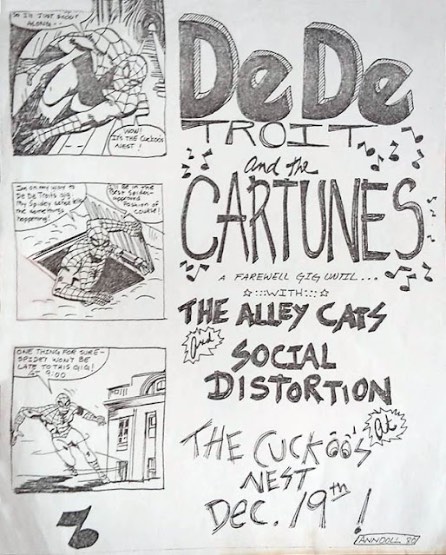 SO I'LL JUST SCOOT
ALONG--
WOW!
IT'S THE CUCKOO'S
NEST!
I'm on my way to
De De Troits gig.
My Spidey sense tells
me something's
happening!
I'll be in the
Best Spider-
Fashion of
course!
ONE THING FOR SURE-
SPIDEY WON'T BE
LATE TO THIS GIG!
9:00
DeDe
TROIT
and the
CARTUNES
A FAREWELL GIG UNTIL...
WITH
THE ALLEY CATS
and
SOCIAL
DISTORTION
at
THE CUCKOO'S
NEST
Dec. 19th!
ANNDOLL '80